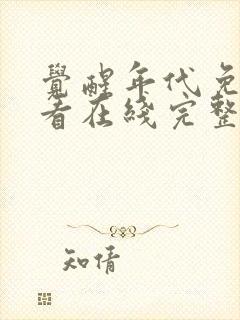 覺醒年代免
看在线完整
知情